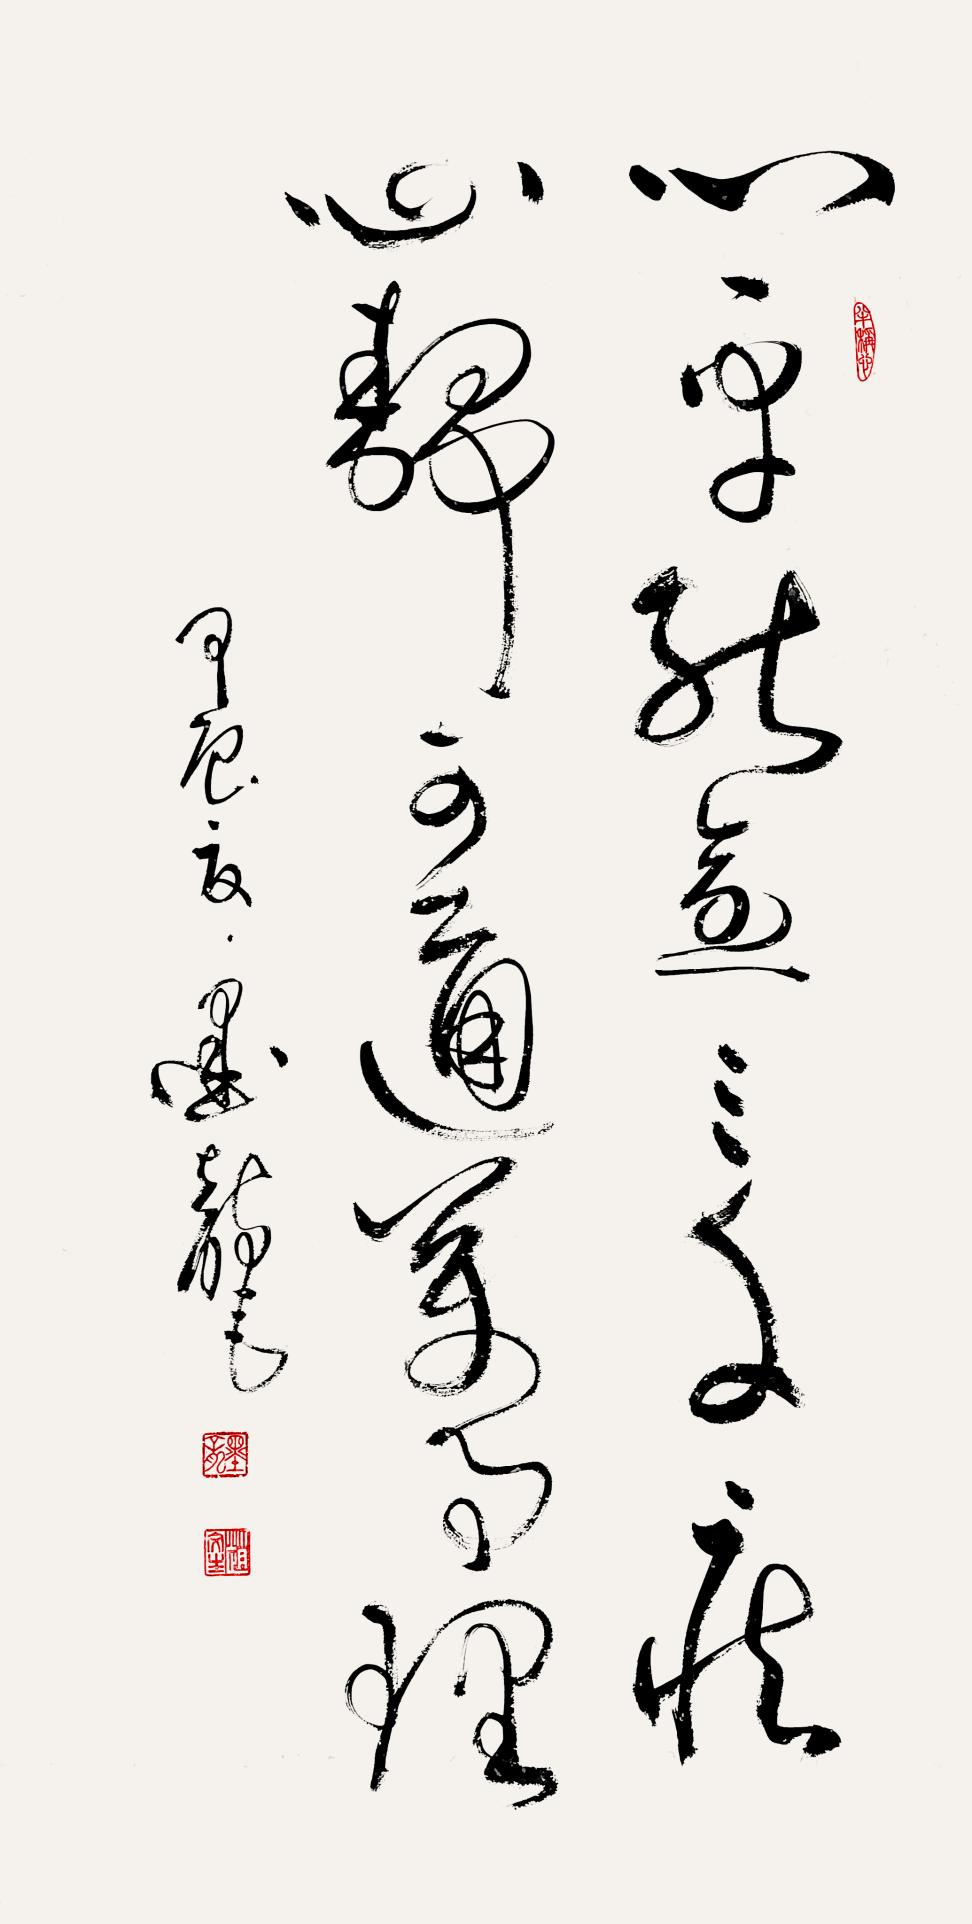 心平能愈三千疾
心靜可通萬事理
甲辰夏·墨龍